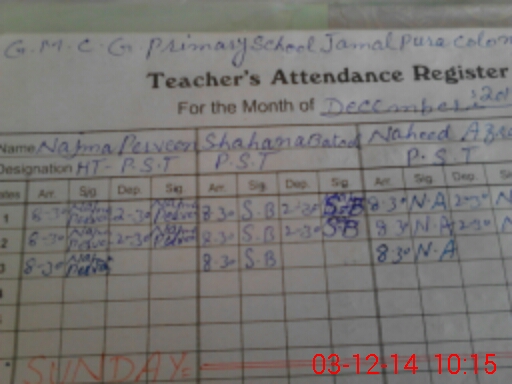 G.M.C.G. Primary School Jamalpura Colon
Teacher's Attendance Register
For the Month of December 201
Name Najma Perveen Shahana Batool Naheed
Designation HT- P.S.T P.S.T P.S.T
ates Arr. Sig. Dep. Sig. Arr. Sig. Dep. Sig. Arr. Sig. Dep. S
1 8-30 Najma Perveen 2-30 Najma Perveen 8 30 S.B 2-30 S.B 8-30 N-A 2-30 N
2 8-30 Najma Perveen 2-30 Najma Perveen 8 30 S.B 2-30 S.B 8 30 N.A 2-30 N
3 8-30 Najma Perveen 8 30 S.B 8 30 N.A
SUNDAY
03-12-14 10:15